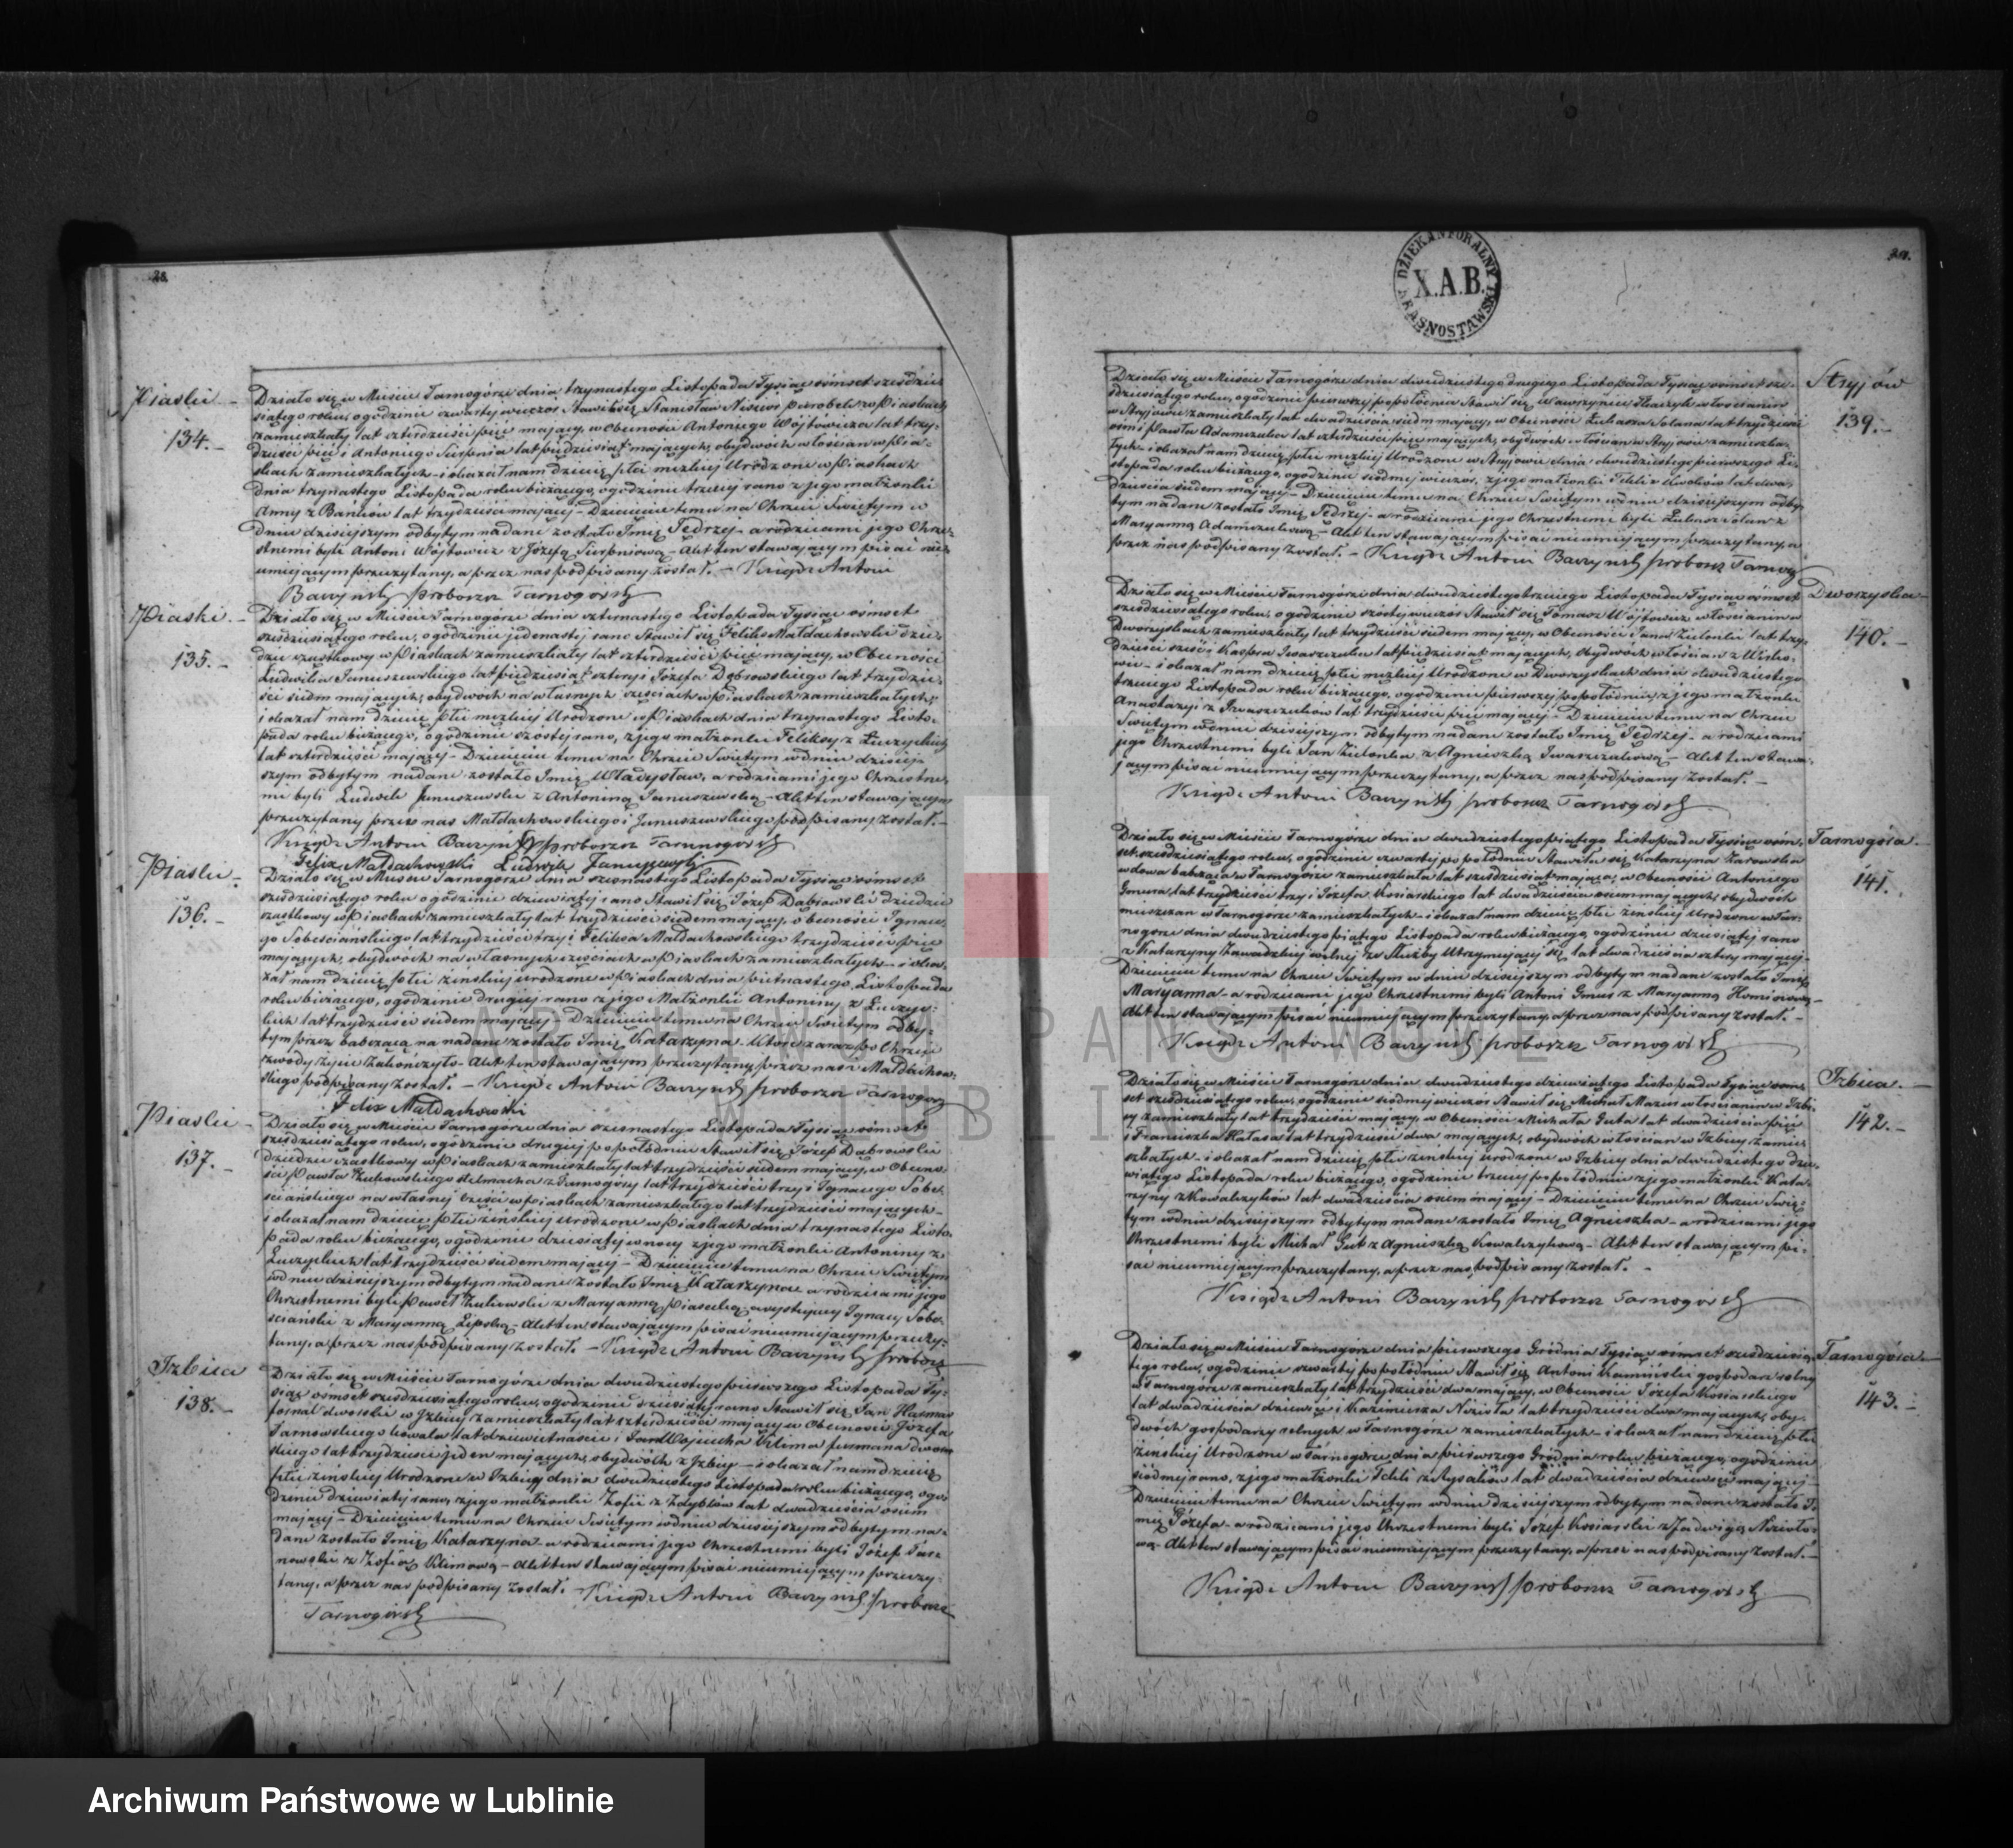 28.
Piaski
134.
Działo się w Mieście Tarnogórze dnia trzynastego Listopada Tysiąc ośmset sześdzie
siątego roku, o godzinie czwartej wieczor Stawił się Stanisław parobek w Piaskach
zamieszkały lat czterdzieści pięć mający, w Obecności Antoniego Wójtowicza lat trzy-
dzieści pięć i Antoniego lat pięćdziesiąt mających, obydwóch włościan w Pia-
skach zamieszkałych i okazał nam dziecię płci męzkiej Urodzone w Piaskach
dnia trzynastego Listopada roku bieżącego, o godzinie trzeciej rano z jego małżonki
Anny z lat trzydzieści mającej - Dziecięciu temu na Chrzcie Świętym w
dniu dzisiejszym odbytym nadane zostało Imię Jędrzej - a rodzicami jego Chrze-
stnemi byli Antoni Wójtowicz z Józefą - Akt ten stawającym pisać nie-
umiejącym przeczytany, a przez nas podpisany został. - Ksiądz Antoni
Baczyński proboszcz Tarnogórski
Piaski
135.
Działo się w Mieście Tarnogórze dnia czternastego Listopada Tysiąc ośmset
sześdziesiątego roku, o godzinie jedenastej rano Stawił się Felix Małdachowski dzie-
dzic cząstkowy w Piaskach zamieszkały lat czterdzieści pięć mający, w Obecności
Ludwika Januszewskiego lat pięćdziesiąt cztery i Józefa Dąbrowskiego lat trzydzie-
ści siedm mających, obydwóch na własnych cześciach w Piaskach zamieszkałych,
i okazał nam dziecię płci męzkiej Urodzone w Piaskach dnia trzynastego Listo-
pada roku bieżącego, o godzinie szostej rano, z jego małżonki Felixy z Łuczyckich
lat czterdzieści mającej - Dziecięciu temu na Chrzcie Świętym w dniu dzisiej-
szym odbytym nadane zostało Imię Władysław, a rodzicami jego Chrzestne-
mi byli Ludwik Januszewski z Antoniną Januszewską - Akt ten stawającym
przeczytany przez nas Małdachowskiego i Januszewskiego podpisany został.
Ksiądz Antoni Baczyński proboszcz Tarnogórski
Felix Małdachowski Ludwik Januszewski
Piaski
136.
Działo się w Mieście Tarnogórze dnia szesnastego Listopada Tysiąc ośmset
sześdziesiątego roku o godzinie dziewiątej rano Stawił się Józef Dąbrowski dziedzic
cząstkowy w Piaskach zamieszkały lat trzydzieści siedem mający, w obecności Ignac-
go Sobeściańskiego lat trzydzieści trzy i Felixa Małdachowskiego trzydzieści pięć
mających, obydwóch na własnych cześciach w Piaskach zamieszkałych - i oka-
zał nam dziecię płci żeńskiej urodzone w Piaskach dnia piętnastego Listopada
roku bieżącego, o godzinie drugiej rano z jego Małżonki Antoniny z Łuczyc-
kich lat trzydzieści siedem mającej - Dziecięciu temu na Chrzcie Świętym odby-
tym przez babczącą nadane zostało Imię Katarzyna. Które zaraz po Chrzcie
z wody życie zakończyło - Akt ten stawającym przeczytany, przez nas i Małdachow-
skiego podpisany został. - Ksiądz Antoni Baczyński proboszcz Tarnogór
Felix Małdachowski
Piaski
137.
Działo się w Mieście Tarnogórze dnia szesnastego Listopada Tysiąc ośmset
sześdziesiątego roku, o godzinie drugiej po południu Stawił się Józef Dąbrowski
dziedzic cząstkowy w Piaskach zamieszkały lat trzydzieści siedem mający, w Obecno-
ści Pawła Żukowskiego stelmacha z Tarnogóry lat trzydzieści trzy i Ignacego Sobe-
ściańskiego na własnej cześci w Piaskach zamieszkałego lat trzydzieści mających -
i okazał nam dziecię płci żeńskiej urodzone w Piaskach dnia trzynastego Listo-
pada roku bieżącego, o godzinie dziesiątej w nocy z jego małżonki Antoniny z
Łuczyckich lat trzydzieści siedem mającej - Dziecięciu temu na Chrzcie Świętym
w dniu dzisiejszym odbytym nadane zostało Imię Katarzyna a rodzicami jego
Chrzestnemi byli Paweł Żukowski z Maryanną Piasecką asystujący Ignacy Sobe-
ściański z Maryanną Lipską - Akt ten stawającym pisać nieumiejącym przeczy-
tany, a przez nas podpisany został. - Ksiądz Antoni Baczyński proboszcz
Izbica
138.
Działo się w Mieście Tarnogórze dnia dwudziestego pierwszego Listopada Ty-
siąc ośmset sześdziesiątego roku, o godzinie dziesiątej rano Stawił się Jan
fornal dworski w Izbicy zamieszkały lat czterdzieści mający w Obecności Józefa
Tarnowskiego kowala lat dziewietnaście i Wojciecha Klima furmana dwor-
skiego lat trzydzieści jeden mających, obydwóch z Izbicy - i okazał nam dziecię
płci żeńskiej Urodzone w Izbicy dnia dwudziestego Listopada roku bieżącego, o go-
dzinie dziewiątej rano, z jego małżonki Zofii z lat dwadzieścia osiem
mającej - Dziecięciu temu na Chrzcie Świętym w dniu dzisiejszym odbytym na-
dane zostało Imię Katarzyna - a rodzicami jego Chrzestnemi byli Józef Tar-
nowski z Zofią Klimową - Akt ten stawającym pisać nieumiejącym przeczy-
tany, a przez nas podpisany został. Ksiądz Antoni Baczyński proboszcz
Tarnogórski
DZIEKAN FORALNY KRASNOSTAWSKI
X.A.B.
Stryjów
139.
Działo się w Mieście Tarnogórze dnia dwudziestego drugiego Listopada Tysiąc ośmset sze-
śdziesiątego roku, o godzinie pierwszej po południu Stawił się Wawrzyniec włościanin
w Stryjowie zamieszkały lat dwadzieścia siedm mający, w Obecności Łukasza lat trzydzieści
ośm i Pawła Adamczuka lat czterdzieści pięć mających, obydwóch włościan w Stryjowie zamieszka-
łych - i okazał nam dziecię płci męzkiej Urodzone w Stryjowie dnia dwudziestego pierwszego Li-
stopada roku bieżącego, o godzinie siódmej wieczór, z jego małżonki Tekli z lat dwa-
dzieścia siedem mającej - Dziecięciu temu na Chrzcie Świętym w dniu dzisiejszym odby-
tym nadane zostało Imię Jędrzej - a rodzicami jego Chrzestnemi byli Łukasz z
Maryanną Adamczukową - Akt ten stawającym pisać nieumiejącym przeczytany, a
przez nas podpisany został. - Ksiądz Antoni Baczyński proboszcz Tarnog
Dworzyska
140.
Działo się w Mieście Tarnogórze dnia dwudziestego trzeciego Listopada Tysiąc ośmset
sześdziesiątego roku, o godzinie szóstej wieczór Stawił się Tomasz Wójtowicz włościanin w
Dworzyskach zamieszkały lat trzydzieści siedem mający, w Obecności Jana Zielonki lat trzy-
dzieści sześć i Kaspra Iwaszczuka lat pięćdziesiąt mających, obydwóch włościan z Wirko-
wic - i okazał nam dziecię płci męzkiej Urodzone w Dworzyskach dnia dwudziestego
trzeciego Listopada roku bieżącego, o godzinie pierwszej po południu, z jego małżonki
Anastazyi z Iwaszczuków lat trzydzieści pięć mającej - Dziecięciu temu na Chrzcie
Świętym w dniu dzisiejszym odbytym nadane zostało Imię Jędrzej - a rodzicami
jego Chrzestnemi byli Jan Zielonka z Agnieszką Iwaszczukową - Akt ten stawa-
jącym pisać nieumiejącym przeczytany, a przez nas podpisany został. -
Ksiądz Antoni Baczyński proboszcz Tarnogórski
Tarnogóra
141.
Działo się w Mieście Tarnogórze dnia dwudziestego piątego Listopada Tysiąc ośm-
set sześdziesiątego roku, o godzinie czwartej po południu Stawiła się Katarzyna Żarowska
wdowa babcząca w Tarnogórze zamieszkała lat sześdziesiąt mająca, w Obecności Antoniego
lat trzydzieści trzy i Józefa Kosiarskiego lat dwadzieścia osiem mających, obydwóch
mieszczan w Tarnogórze zamieszkałych - i okazał nam dziecię płci żeńskiej urodzone w Tar-
nogórze dnia dwudziestego piątego Listopada roku bieżącego, o godzinie dziesiątej rano
z Katarzyny Zawadzkiej wolnej ze Służby Utrzymującej się, lat dwadzieścia cztery mającej -
Dziecięciu temu na Chrzcie Świętym w dniu dzisiejszym odbytym nadane zostało Imię
Maryanna - a rodzicami jego Chrzestnemi byli Antoni z Maryanną
Akt ten stawającym pisać nieumiejącym przeczytany, a przez nas podpisany został. -
Ksiądz Antoni Baczyński proboszcz Tarnogórski
Izbica.
142.
Działo się w Mieście Tarnogórze dnia dwudziestego dziewiątego Listopada Tysiąc ośm-
set sześdziesiątego roku, o godzinie siódmej wieczór Stawił się Michał Mazur włościanin w Izbi-
cy zamieszkały lat trzydzieści mający, w Obecności Michała Guta lat dwadzieścia pięć
i Franciszka lat trzydzieści dwa mających, obydwóch włościan w Izbicy zamie-
szkałych - i okazał nam dziecię płci żeńskiej urodzone w Izbicy dnia dwudziestego dzie-
wiątego Listopada roku bieżącego, o godzinie trzeciej po południu z jego małżonki Kata-
rzyny z Kowalczyków lat dwadzieścia osiem mającej - Dziecięciu temu na Chrzcie Świę-
tym w dniu dzisiejszym odbytym nadane zostało Imię Agnieszka - a rodzicami jego
Chrzestnemi byli Michał Gut z Agnieszką Kowalczykową - Akt ten stawającym pi-
sać nieumiejącym przeczytany, a przez nas podpisany został. -
Ksiądz Antoni Baczyński proboszcz Tarnogórski
Tarnogóra
143.
Działo się w Mieście Tarnogórze dnia pierwszego Grudnia Tysiąc ośmset sześdziesią-
tego roku, o godzinie czwartej po południu Stawił się Antoni Kamiński gospodarz rolny
w Tarnogórze zamieszkały lat trzydzieści dwa mający, w Obecności Józefa Kosiarskiego
lat dwadzieścia dziewięć i Kazimierza Nizioła lat trzydzieści dwa mających, oby-
dwóch gospodarzy rolnych w Tarnogórze zamieszkałych - i okazał nam dziecię płci
żeńskiej Urodzone w Tarnogórze dnia pierwszego Grudnia roku bieżącego, o godzinie
siódmej rano, z jego małżonki Tekli z lat dwadzieścia dziewięć mającej -
Dziecięciu temu na Chrzcie Świętym w dniu dzisiejszym odbytym nadane zostało I-
mię Józefa - a rodzicami jego Chrzestnemi byli Józef Kosiarski z Jadwigą Nizioło-
wą - Akt ten stawającym pisać nieumiejącym przeczytany, a przez nas podpisany został. -
Ksiądz Antoni Baczyński proboszcz Tarnogórski
ARCHIWUM PAŃSTWOWE
W LUBLINIE
Archiwum Państwowe w Lublinie